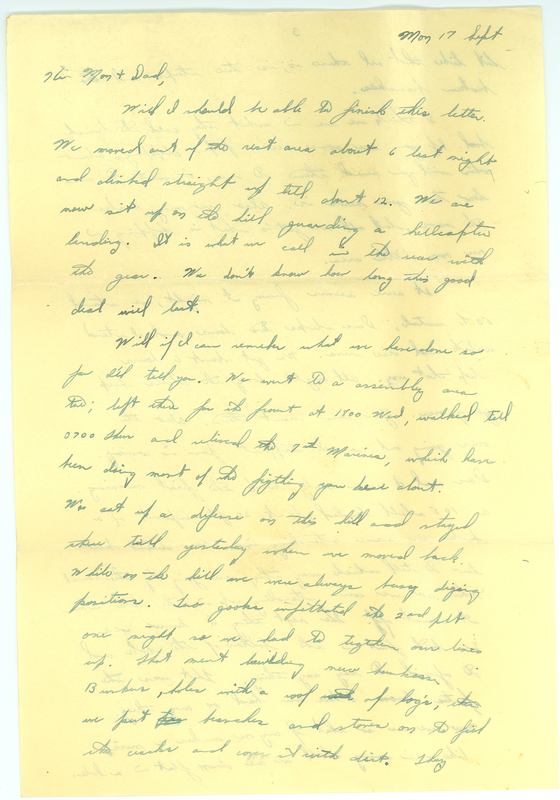 Mon 17 Sept
Hi Mom + Dad,
Well I should be able to finish this letter.
We moved out of the rest area about 6 last night
and climbed straight up till about 12. We are
now sit up on the hill guarding a hellicopter
landing. It is what we call in the rear with
the gear. We don't know how long this good
deal will last.
Well if I can remeber what we have done so
far I'll tell you. We went to a assembly area
Tue; left there for the front at 1800 Wed, walked till
0700 Thur and relived the 7th Marines, which have
been doing most of the figtting you hear about.
We set up a defense on this hill and stayed
there till yesterday when we moved back.
While on the hill we were always busy diging
positions. Two gooks infiltrated the 2nd plt
one night so we had to tighten our lines
up. That ment building new bunkers.
Bunkers, holes with a roof of logs,
we put branches and stones on to fill
the cracks and cover it with dirt. They